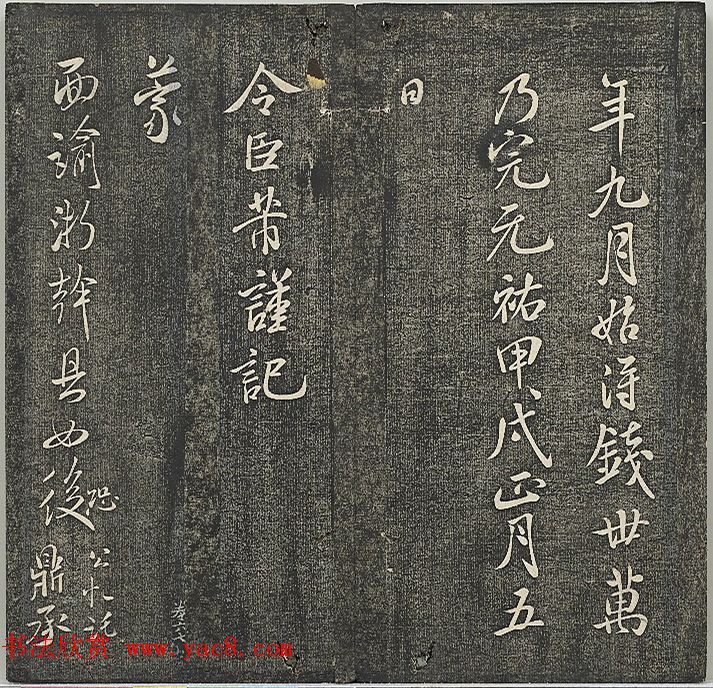 年九月始得錢丗萬
乃完元祐甲戌正月五
日
令臣芾謹記
蒙
面諭浙幹具如後
恐
鼎承
书法欣赏 www.yac8.com